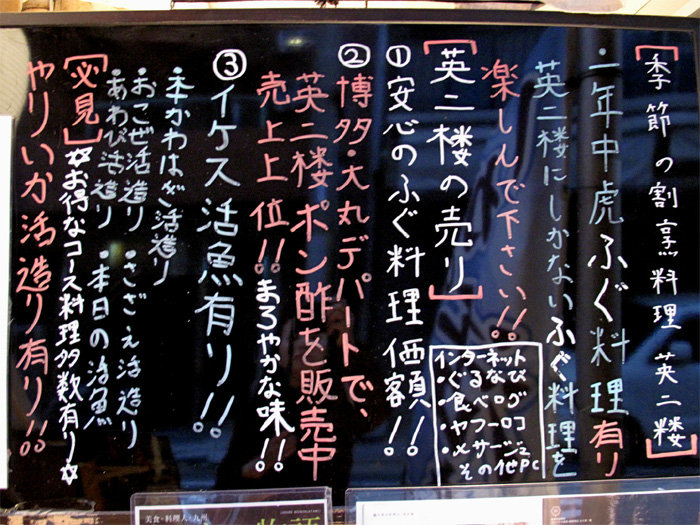 [季節の割烹料理 英二楼]
・一年中虎ふぐ料理有り
英二楼にしかないふぐ料理を
楽しんで下さい!!
[英二楼の売り]
①安心のふぐ料理価額!!
②博多・大丸デパートで、
英二楼ポン酢を販売中
売上上位!!まろやかな味!!
③イケス活魚有り!!
・本かわはぎ活造り
・おこぜ活造り ・さざえ活造り
・あわび活造り ・本日の活魚
[必見]☆お得なコース料理多数有り☆
やりいか活造り有り!!
インターネット
・ぐるなび
・食べログ
・ヤフーロコ
・メサージュ
その他PC
美食・料理人・九州